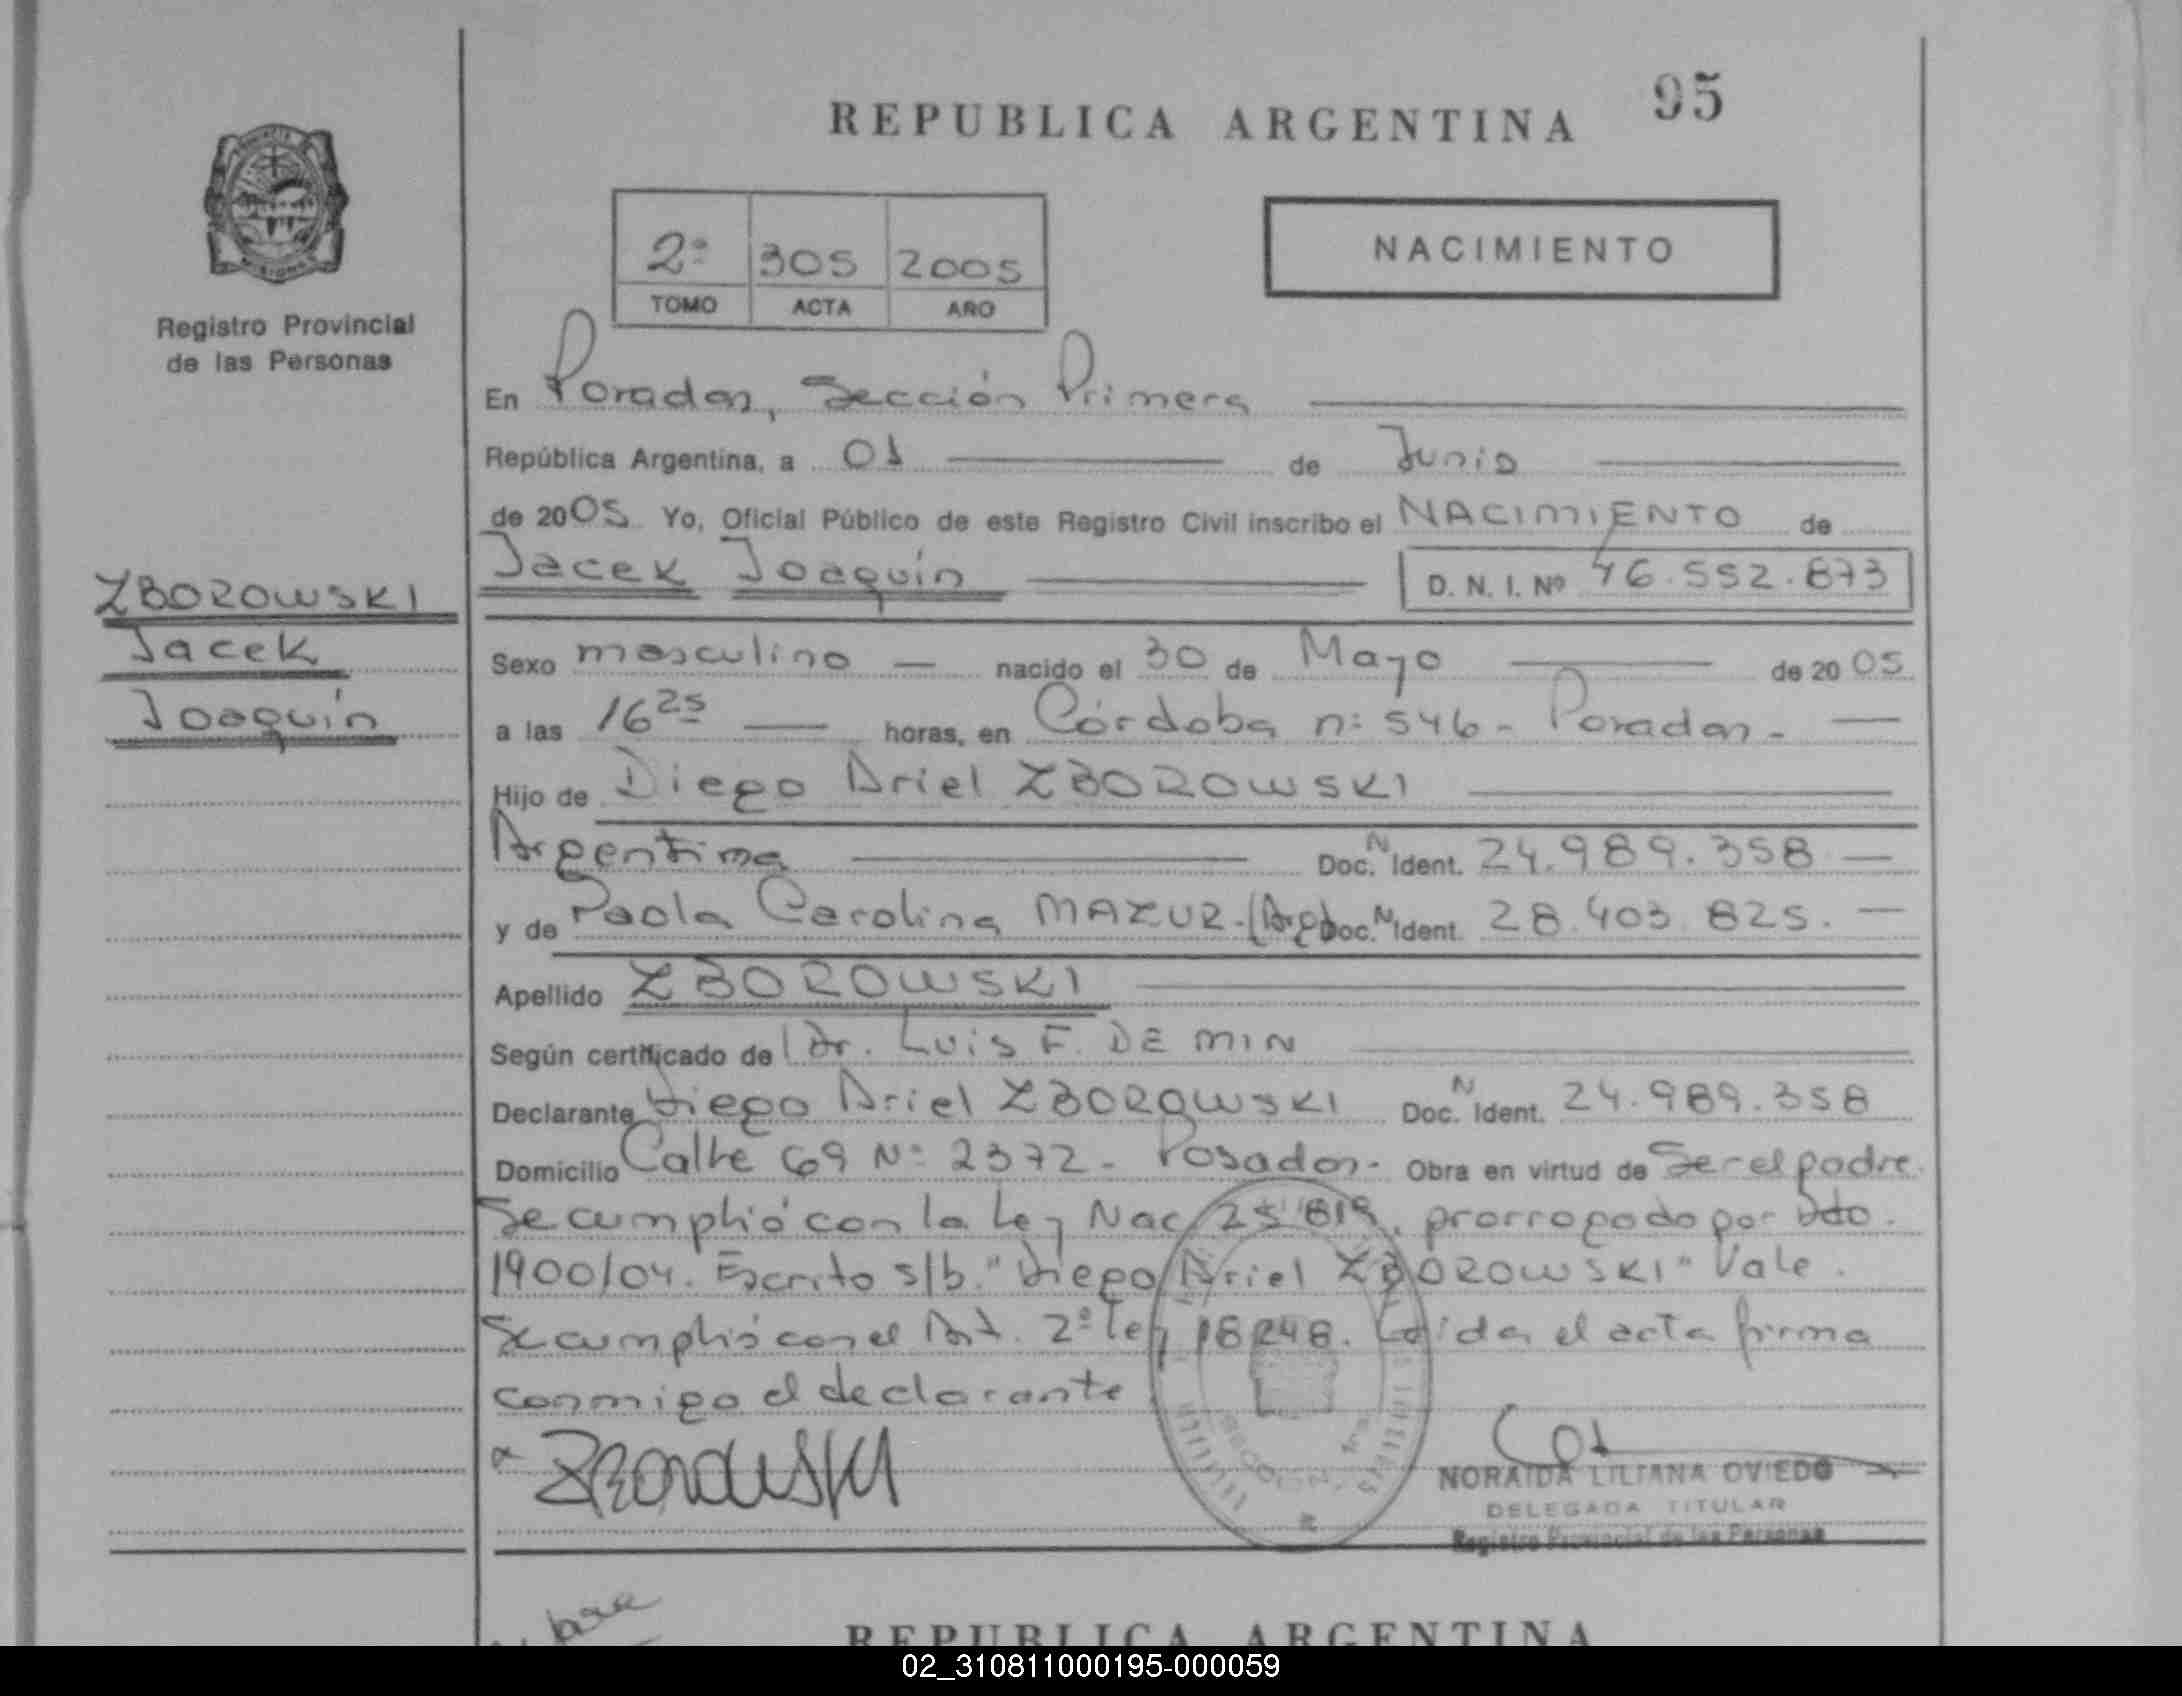 REPUBLICA ARGENTINA 95
PROVINCIA DE
MISIONES
Registro Provincial
de las Personas
2º 305 2005
TOMO ACTA AÑO
NACIMIENTO
En Posadas, Sección Primera
República Argentina, a 01 de Junio
de 2005 Yo, Oficial Público de este Registro Civil inscribo el NACIMIENTO de
Jacek Joaquín D. N. I. Nº 46.552.873
ZBOROWSKI
Jacek
Joaquín
Sexo masculino nacido el 30 de Mayo de 2005
a las 16 25 horas, en Córdoba nº 546 - Posadas -
Hijo de Diego Ariel ZBOROWSKI
Argentina Doc. N Ident. 24.989.358
y de Paola Carolina MAZUR. (Arg) Doc. N Ident. 28.403.825.
Apellido ZBOROWSKI
Según certificado de Dr. Luis F. DE MIN
Declarante Diego Ariel ZBOROWSKI Doc. N Ident. 24.989.358
Domicilio Calle 69 Nº 2372 - Posadas - Obra en virtud de Ser el padre.
Se cumplió con la Ley Nac 25 819, prorrogado por Dto.
1900/04. Escrito s/b. "Diego Ariel ZBOROWSKI" Vale.
Se cumplió con el Art. 2º Ley 18248. Leída el acta firma
conmigo el declarante
ZBOROWSKI
NORAIDA LILIANA OVIEDO
DELEGADA TITULAR
Registro Provincial de las Personas
REPUBLICA ARGENTINA
02_310811000195-000059